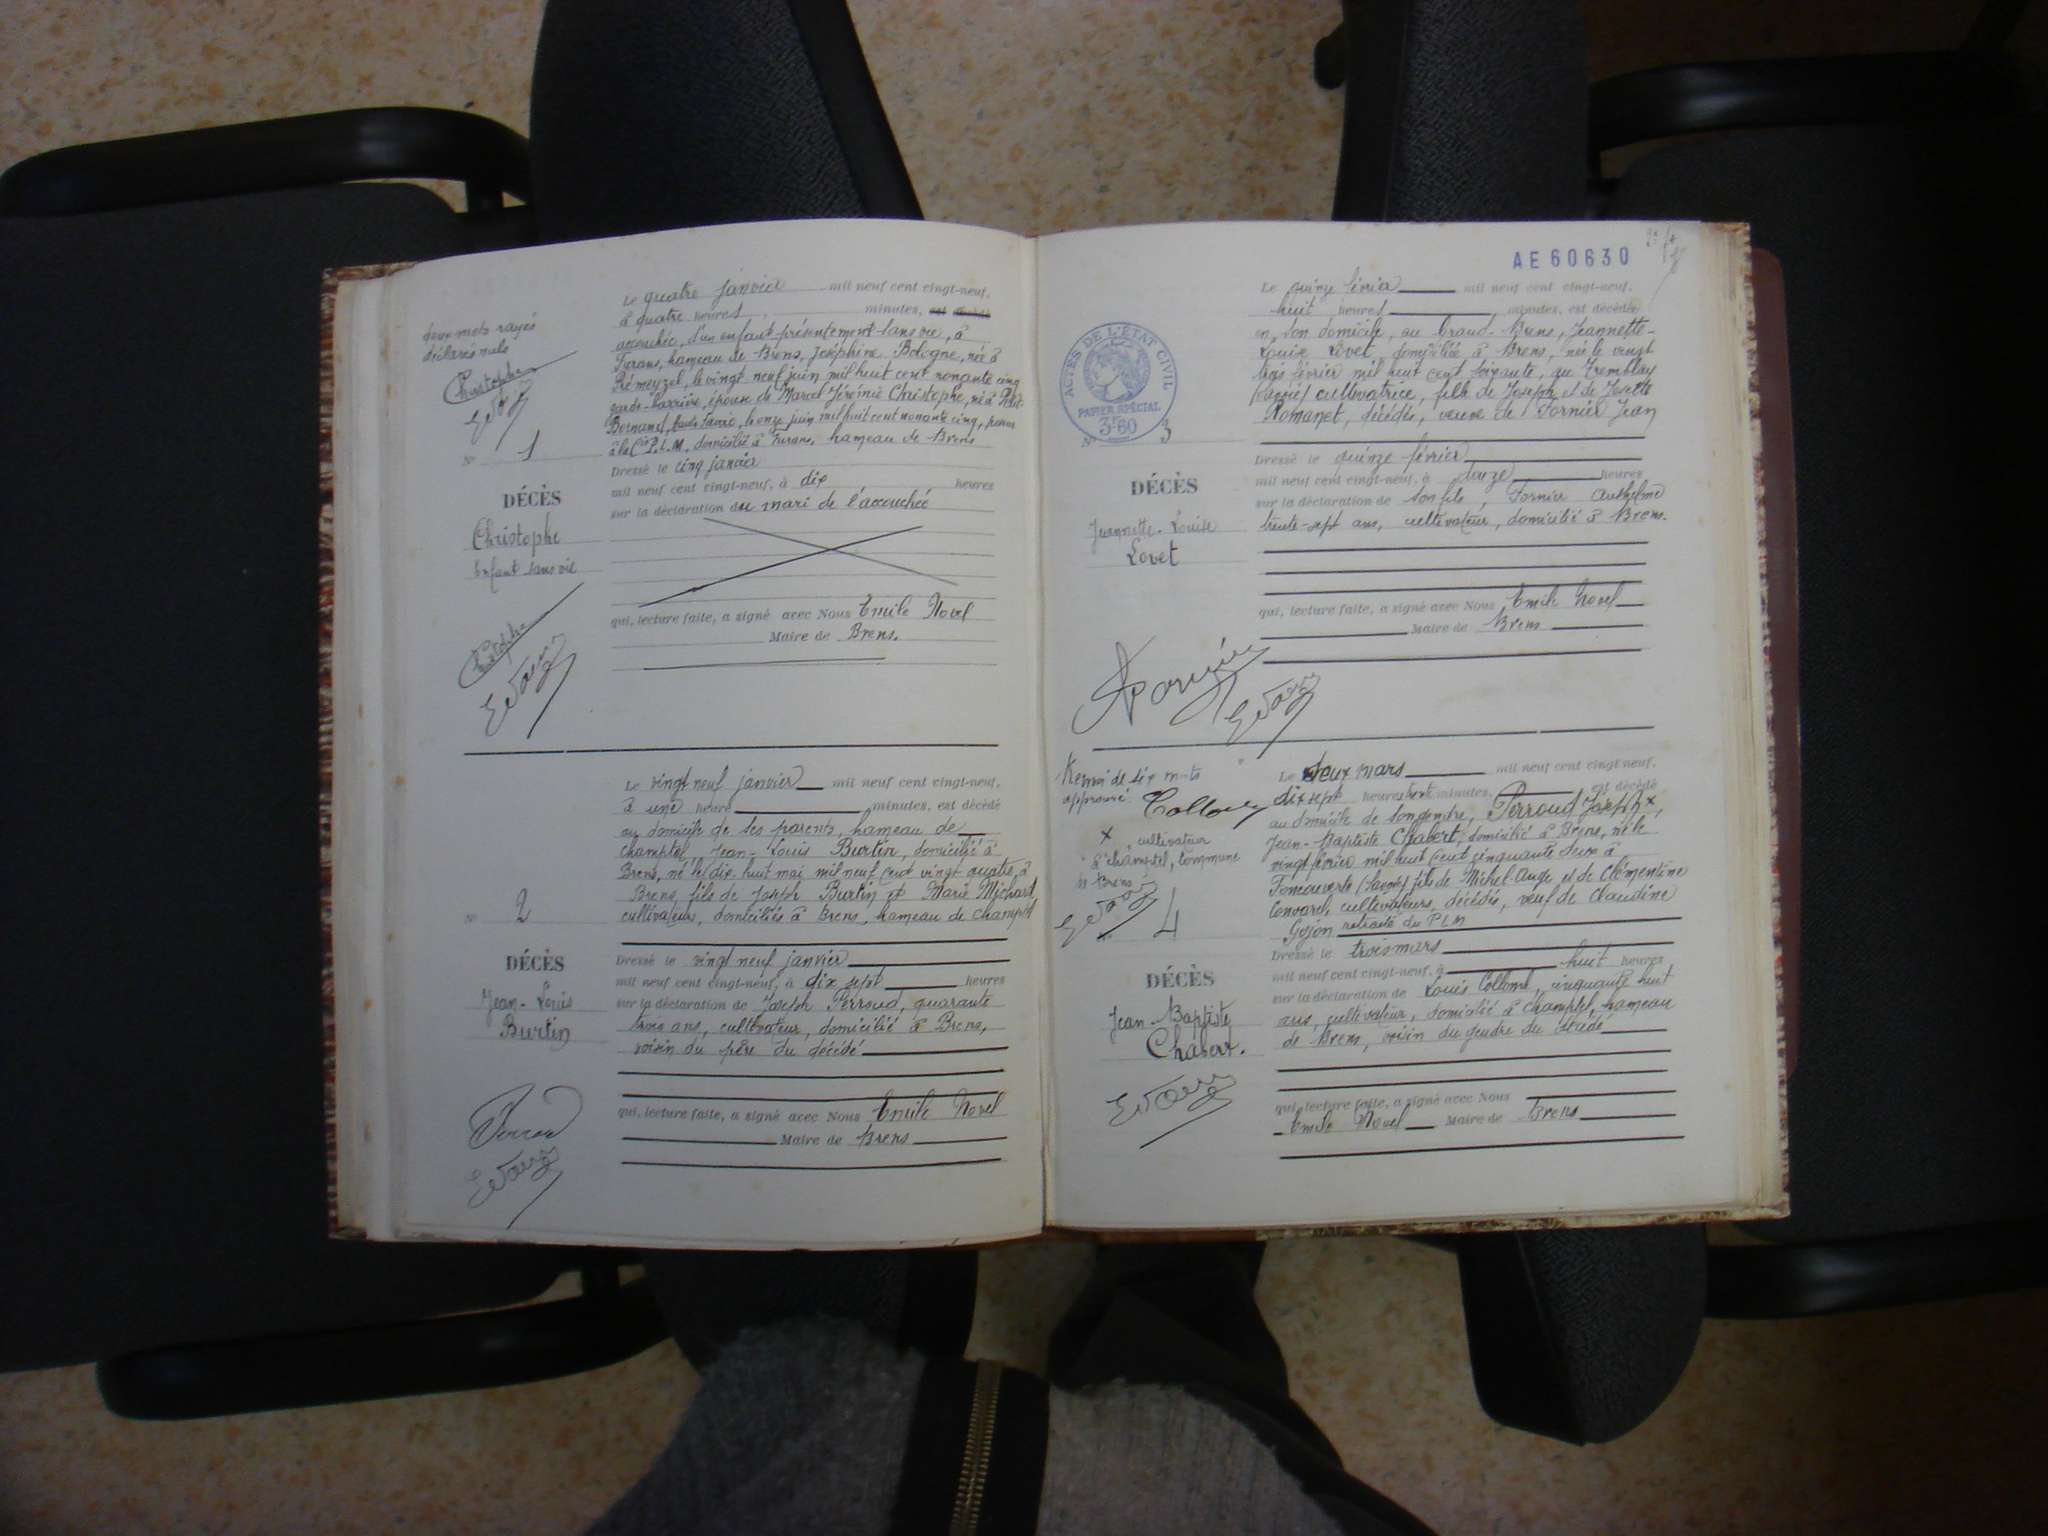 deux mots rayés
déclarés nuls
Christophe
Nº 1
DÉCÈS
Christophe
Enfant sans vie
Christophe
Le quatre janvier mil neuf cent vingt-neuf,
à quatre heures minutes,
accouchée, d'un enfant présentement sans vie, à
Furans, hameau de Brens, Joséphine Bologne, née à
Rémeyzel, le vingt neuf juin mil huit cent nonante cinq
garde-barrière, épouse de Marcel Jérémie Christophe, né à Petit-
Bornand, Haute Savoie, le onze juin mil huit cent nonante cinq,
à la Cie P.L.M. domicilié à Furans, hameau de Brens
Dressé le cinq janvier
mil neuf cent vingt-neuf, à dix heures
sur la déclaration du mari de l'accouchée
qui, lecture faite, a signé avec Nous Emile Novel
Maire de Brens.
Nº 2
DÉCÈS
Jean-Louis
Burtin
Le vingt neuf janvier mil neuf cent vingt-neuf,
à une heure minutes, est décédé
au domicile de ses parents, hameau de
Champtel, Jean-Louis Burtin, domicilié à
Brens, né le dix huit mai mil neuf cent vingt quatre, à
Brens, fils de Joseph Burtin et Marie Michard
cultivateurs, domiciliés à Brens, hameau de Champtel
Dressé le vingt neuf janvier
mil neuf cent vingt-neuf, à dix sept heures
sur la déclaration de Joseph Perroud, quarante
trois ans, cultivateur, domicilié à Brens,
voisin du père du décédé
qui, lecture faite, a signé avec Nous Emile Novel
Maire de Brens
AE 60630
ACTES DE L'ÉTAT CIVIL
PAPIER SPÉCIAL
3f60
Nº 3
DÉCÈS
Jeannette-Louise
Lovet
Le quinze février mil neuf cent vingt-neuf,
huit heures minutes, est décédée
en son domicile, au Grand-Brens, Jeannette-
Louise Lovet, domiciliée à Brens, née le vingt
trois février mil huit cent soixante, au Tremblay
(Savoie) cultivatrice, fille de Joseph et de Josette
Romanet, décédés, veuve de Fornier Jean
Dressé le quinze février
mil neuf cent vingt-neuf, à heures
sur la déclaration de son fils, Fornier Anthelme
trente-sept ans, cultivateur, domicilié à Brens.
qui, lecture faite, a signé avec Nous Emile Novel
Maire de Brens
Renvoi de six mots
approuvé.
x, cultivateur
à Champtel, commune
de Brens
4
DÉCÈS
Jean-Baptiste
Chabert.
Le deux mars mil neuf cent vingt-neuf,
dix sept heures trente minutes, est décédé
au domicile de son gendre, Perroud Joseph x,
Jean-Baptiste Chabert, domicilié à Brens, né le
vingt février mil huit cent cinquante deux à
Foncouverte (Savoie) fils de Michel-Ange et de Clémentine
cultivateurs, décédés, veuf de Claudine
Gojon retraité du PLM
Dressé le trois mars
mil neuf cent vingt-neuf, à huit heures
sur la déclaration de Louis Collomb, cinquante huit
ans, cultivateur, domicilié à Champtel, hameau
de Brens, voisin du gendre du décédé
qui, lecture faite, a signé avec Nous
Emile Novel Maire de Brens